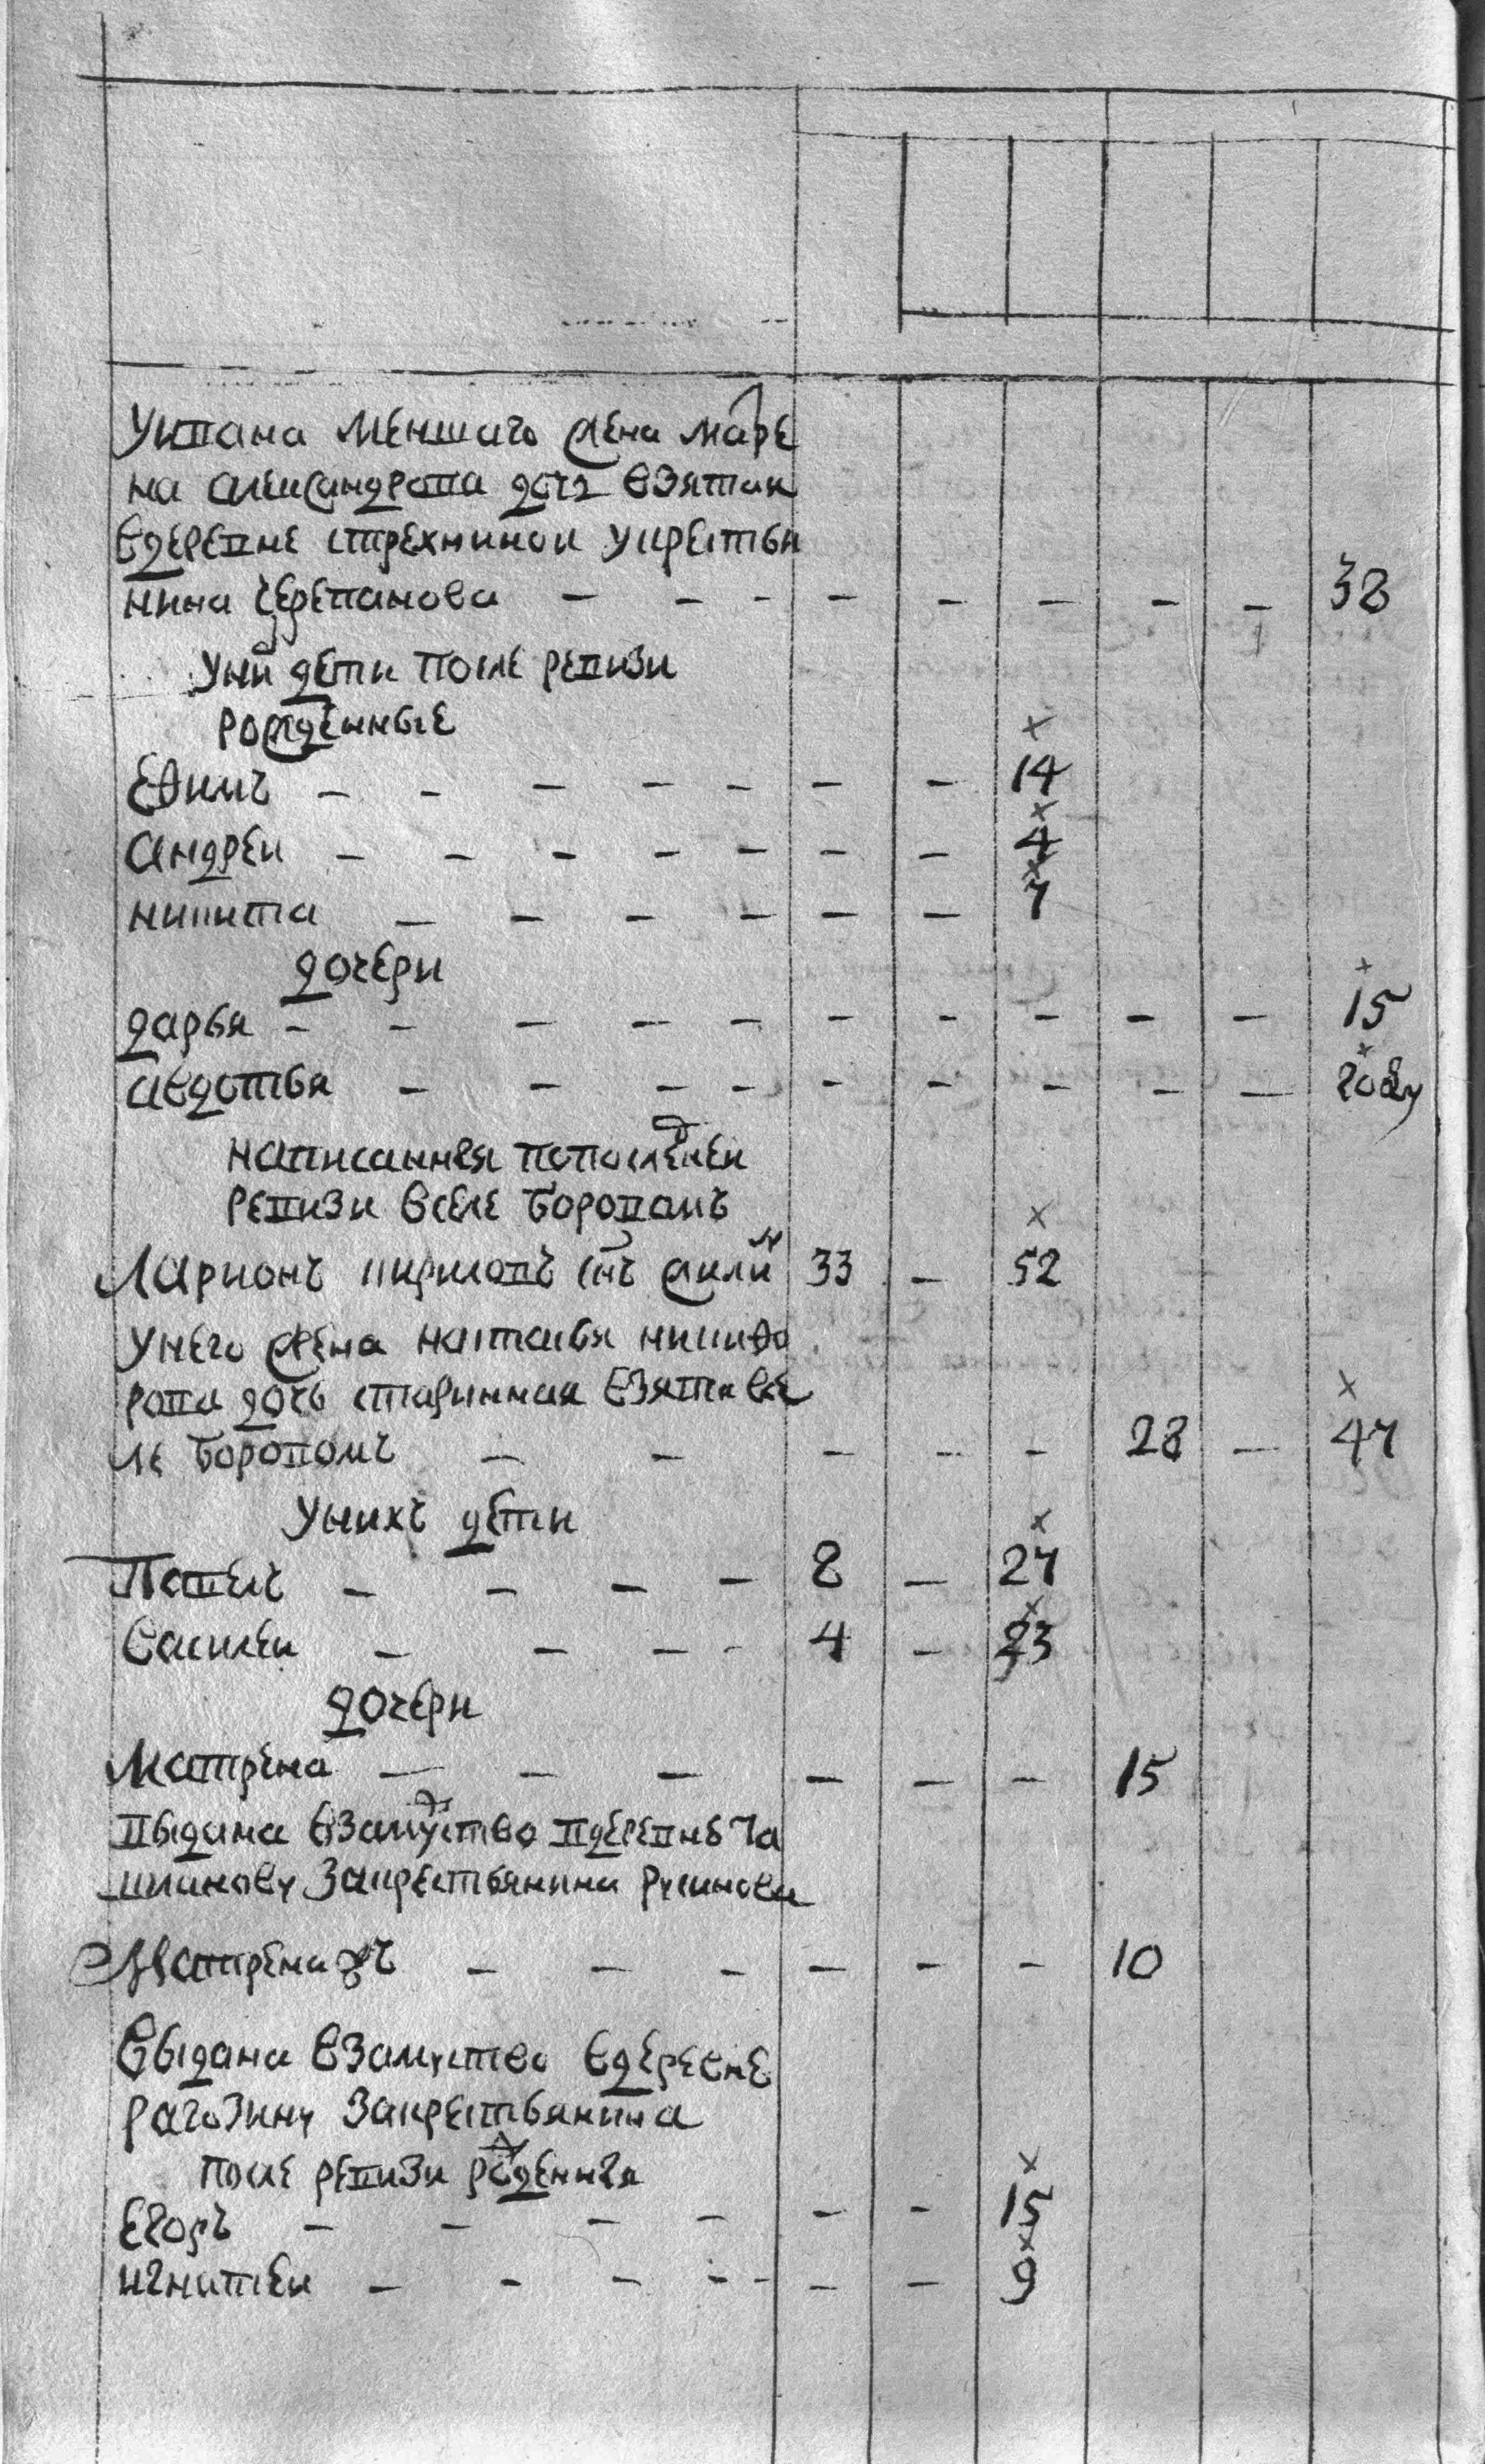 Уивана меншаго жена маре
на александрова дочь взятая
вдеревне стрехниной укрестья
нина черепанова — — — — — — — — 38
Уних дети после ревизи
рожденные
Ефимъ — — — — — — — 14
андрей — — — — — — — 4
никита — — — — — — 7
дочери
дарья — — — — — — — — — — 15
авдотья — — — — — — — — — году
написанныя попоследней
ревизи вселе боровомъ
Ларионъ кириловъ снъ жилин 33 — 52
Унего жена настасья никифо
рова дочь старинная взята все
ле боровомъ — — — — — 28 — 47
Унихъ дети
Павелъ — — — — 8 — 27
василей — — — — 4 — 23
дочери
Матрена — — — — — — 15
выдана взамужство вдеревнь ча
шкинову закрестьянина русинова
Матрена ж — — — — — — 10
выдана взамуство вдеревне
рагозину закрестьянина
после ревизи рожденныя
Егоръ — — — — — — 15
игнатей — — — — — — — 9